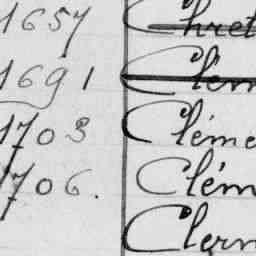 1657 Chret
1691 Clém
1703 Cléme
1706. Clém
Clerm